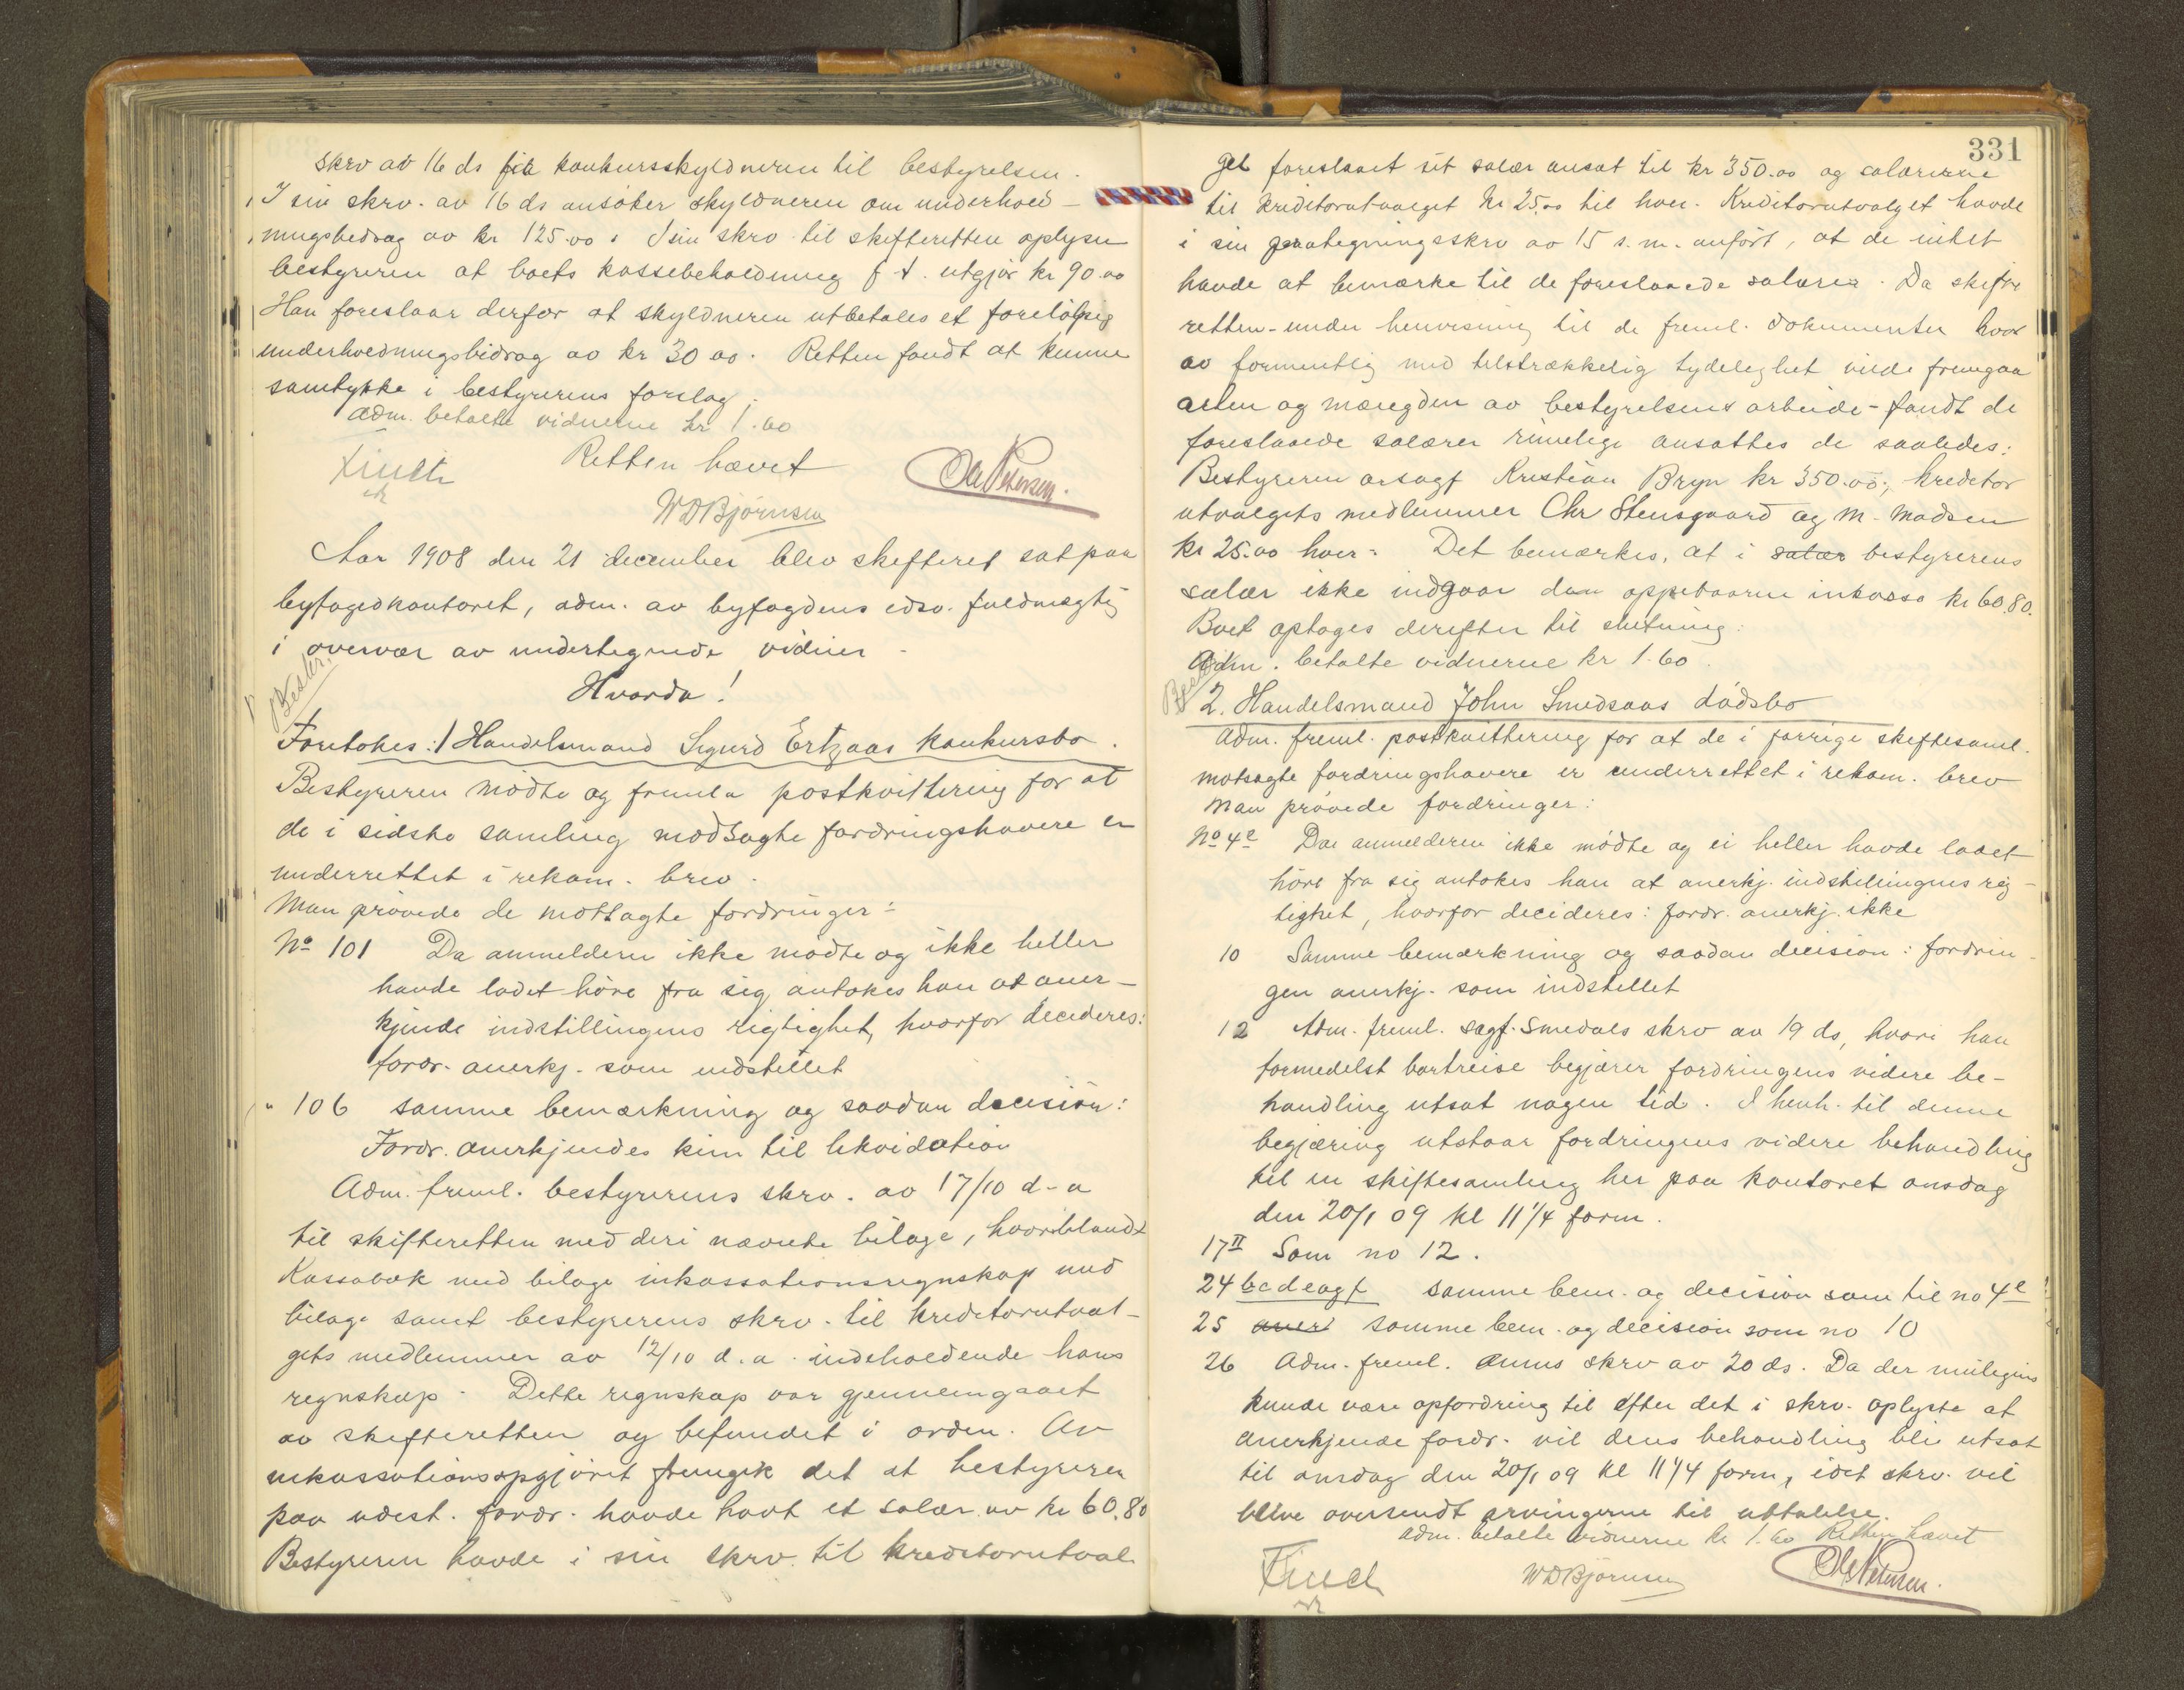 skrv av 16 ds fra konkursskyldneren til bestyrelsen.
I sin skrv. av 16 ds ansøker skyldneren om underhold-
ningsbedrag av kr 125.00. I sin skrv til skifteretten oplyser
bestyreren at boets kassebeholdning f t. utgjør kr 90.00
Han foreslaar derfor at skyldneren utbetales et foreløbig
underholdningsbidrag av kr 30.00. Retten fandt at kunne
samtykke i bestyrerens forslag.
Adm. betalte vidnerne kr 1.60
Retten hævet
Finch
Ole Petersen.
WDBjørnsen
Aar 1908 den 21 december blev skifteret sat paa
byfogedkontoret, adm. av byfogdens edsv. fuldmægtig
i overvær av undertegnede vidner -
Hvorda!
Beskr.
Foretokes: 1 Handelsmand Sigurd Ertzaas konkursbo.
Bestyreren mødte og fremla postkvittering for at
de i sidste samling modsagte fordringshavere er
underrettet i rekom. brev.
Man prøvede de motsagte fordringer:
No 101 Da anmelderen ikke mødte og ikke heller
havde ladet høre fra sig antokes han at aner-
kjende indstillingens rigtighet, hvorfor decideres:
fordr. anerkj. som indstillet
" 106 samme bemærkning og saadan decision:
Fordr. anerkjendes kun til likvidation
Adm. freml. bestyrerens skrv. av 17/10 d-a
til skifteretten med deri nævnte bilage, hvoriblandt
Kassabok med bilage inkassationsregnskap med
bilage samt bestyrerens skrv. til kreditorutval-
gets medlemmer av 12/10 d.a. indeholdende hans
regnskap. Dette regnskap var gjennemgaaet
av skifteretten og befundet i orden. Av
inkassationsopgjøret fremgik det at bestyreren
paa udest. fordr. havde havt et salær av kr 60.80
Bestyreren havde i sin skrv. til kreditorutval
331
get foreslaaet sit salær ansat til kr 350.00 og salærerne
til kreditorutvalget kr 25.00 til hver. Kreditorutvalget havde
i sin paategningsskrv av 15 s.m. anført, at de intet
havde at bemærke til de foreslaaede salærer. Da skifte
retten - under henvisning til de freml. dokumenter hvor
av formentlig med tilstrækkelig tydelighet vilde fremgaa
arten og mængden av bestyrelsens arbeide - fandt de
foreslaaede salærer rimelige ansattes de saaledes:
Bestyreren orsagf Kristian Bryn kr 350.00, kreditor
utvalgets medlemmer Chr Stensgaard og M. Madsen
kr 25.00 hver. Det bemærkes, at i salær bestyrerens
salær ikke indgaar den oppebaarne inkasso kr 60.80.
Boet optages derefter til slutning.
Adm. betalte vidnerne kr 1.60.
2. Handelsmand John Smedsaas dødsbo
Adm. freml. postkvittering for at de i forrige skiftesaml.
motsagte fordringshavere er underrettet i rekom. brev
Man prøvede fordringer:
No 4e Da anmelderen ikke mødte og ei heller havde ladet
høre fra sig antokes han at anerkj. indstillingens rig-
tighet, hvorfor decideres: fordr. anerkj. ikke
10 Samme bemærkning og saadan decision: fordrin-
gen anerkj. som indstillet
12 Adm. freml. sagf. Smedals skrv av 19 ds, hvori han
formedelst bortreise begjærer fordringens videre be-
handling utsat nogen tid. I henh. til denne
begjæring utstaar fordringens videre behandling
til en skiftesamling her paa kontoret onsdag
den 20/1 09 kl 11 1/4 form.
17 II Som no 12.
24 bcdeogf samme bem. og decision som til no 4e
25 aner samme bem. og decision som no 10
26 Adm. freml. Anms skrv av 20 ds. Da der muligens
kunde være opfordring til efter det i skrv. oplyste at
anerkjende fordr. vil dens behandling bli utsat
til onsdag den 20/1 09 kl 11 1/4 form, idet skrv. vil
blive oversendt arvingerne til uttalelse.
Adm. betalte vidnerne kr 1.60 Retten hævet
Finch
WDBjørnsen
Ole Petersen.